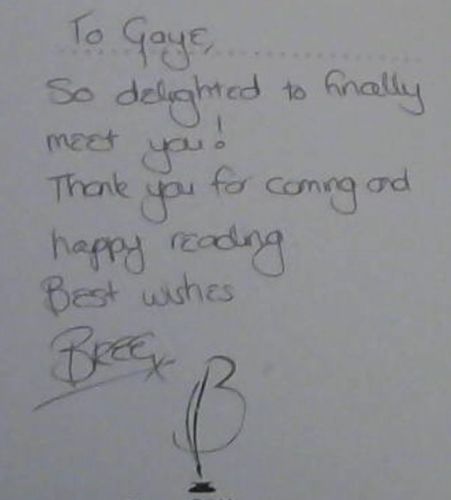 To Gaye,
So delighted to finally
meet you!
Thank you for coming and
happy reading
Best wishes
BREE x
B